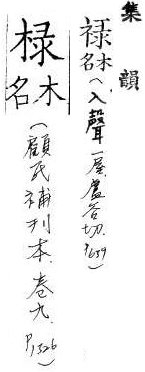 集韻
禄木名(入聲一屋盧谷切.P.659)
椂木名(顧氏補刊本.卷九.P.1326)